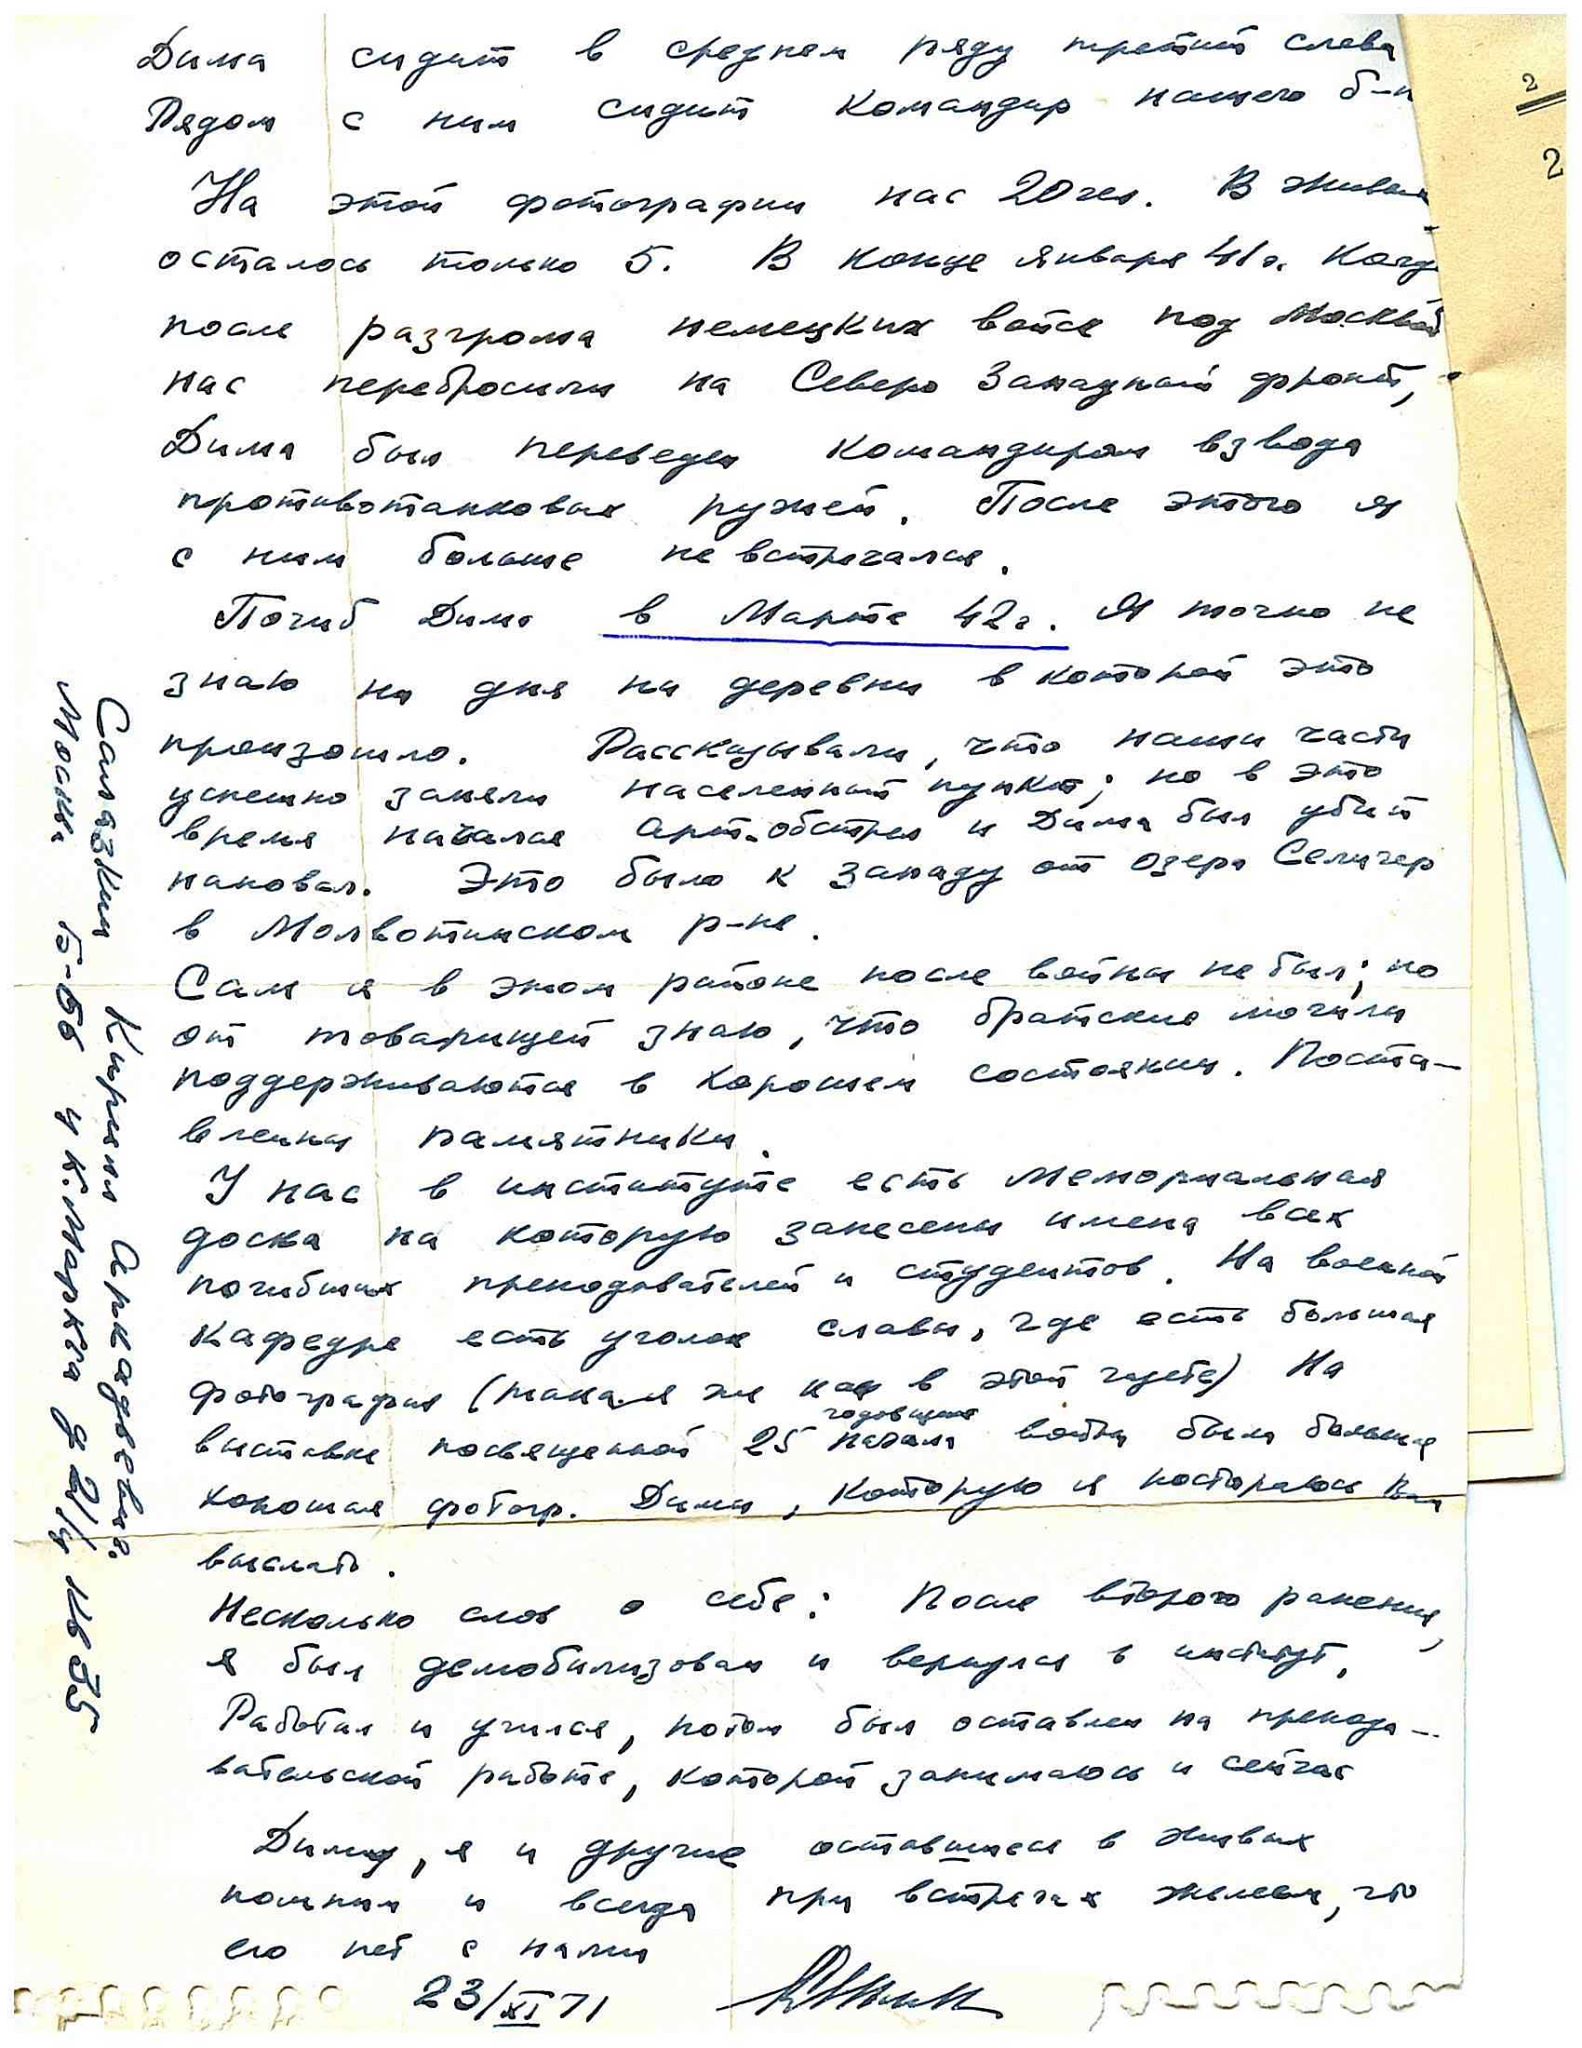 Дима сидит в среднем ряду третий слева
Рядом с ним сидит командир нашего б-н
На этой фотографии нас 20 чел. В живых
осталось только 5. В конце января 41 г. Когда
после разгрома немецких войск под Москвой
нас перебросили на Северо Западный фронт,
Дима был переведен командиром взвода
противотанковых ружей. После этого я
с ним больше не встречался.
Погиб Дима в Марте 42 г. Я точно не
знаю ни дня ни деревни в которой это
произошло. Рассказывали, что наши части
успешно заняли населенный пункт; но в это
время начался арт. обстрел и Дима был убит
наповал. Это было к западу от озера Селигер
в Молвотинском р-не.
Сам я в этом районе после войны не был; но
от товарищей знаю, что братские могилы
поддерживаются в хорошем состоянии. Поста-
влены памятники.
У нас в институте есть мемориальная
доска на которую занесены имена всех
погибших преподавателей и студентов. На военной
кафедре есть уголок славы, где есть большая
фотография (такая же как в этой газете) На
выставке посвященной 25 годовщине начала войны была большая
хорошая фотогр. Димы, которую я постараюсь Вам
выслать.
Несколько слов о себе: После второго ранения,
я был демобилизован и вернулся в институт.
Работал и учился, потом был оставлен на препода-
вательской работе, которой занимаюсь и сейчас
Диму, я и другие оставшиеся в живых
помним и всегда при встречах жалеем, что
его нет с нами
23/XI 71
Салазкин Кирилл Аркадьевич.
Москва Б-66 ул. К. Маркса д 21/4 кв 35
2
2